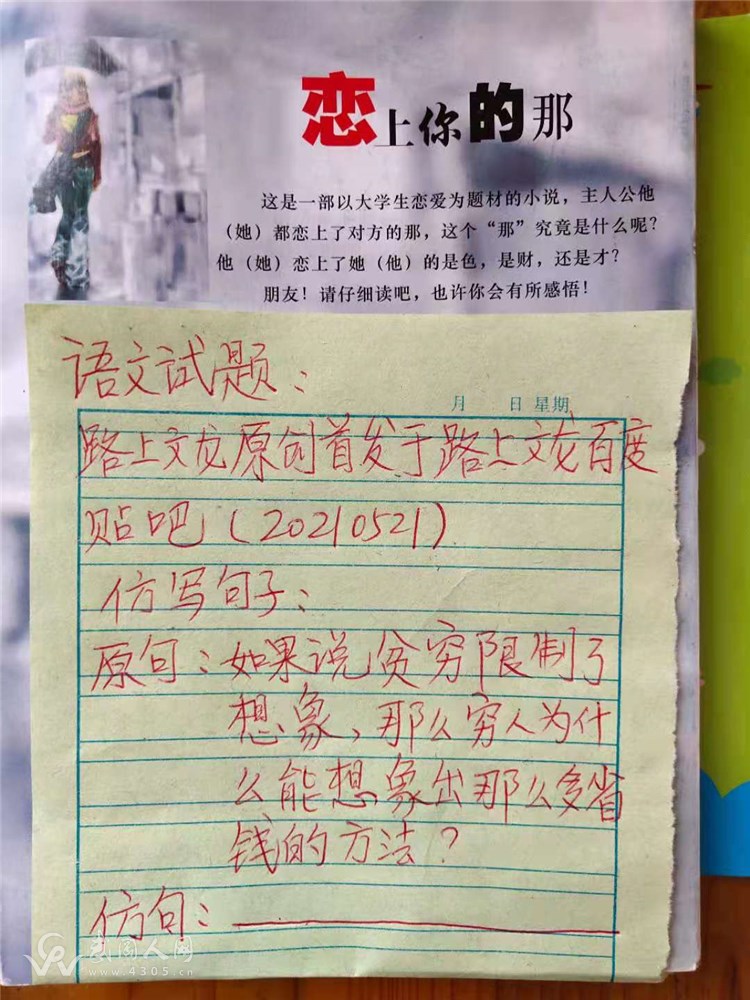 恋上你的那
这是一部以大学生恋爱为题材的小说，主人公他
（她）都恋上了对方的那，这个“那”究竟是什么呢？
他（她）恋上了她（他）的是色，是财，还是才？
朋友！请仔细读吧，也许你会有所感悟！
语文试题：
月 日 星期
路上文龙原创首发于路上文龙百度
贴吧（20210521）
仿写句子：
原句：如果说贫穷限制了
想象，那么穷人为什
么能想象出那么多省
钱的方法？
仿句：
www.4305.cn